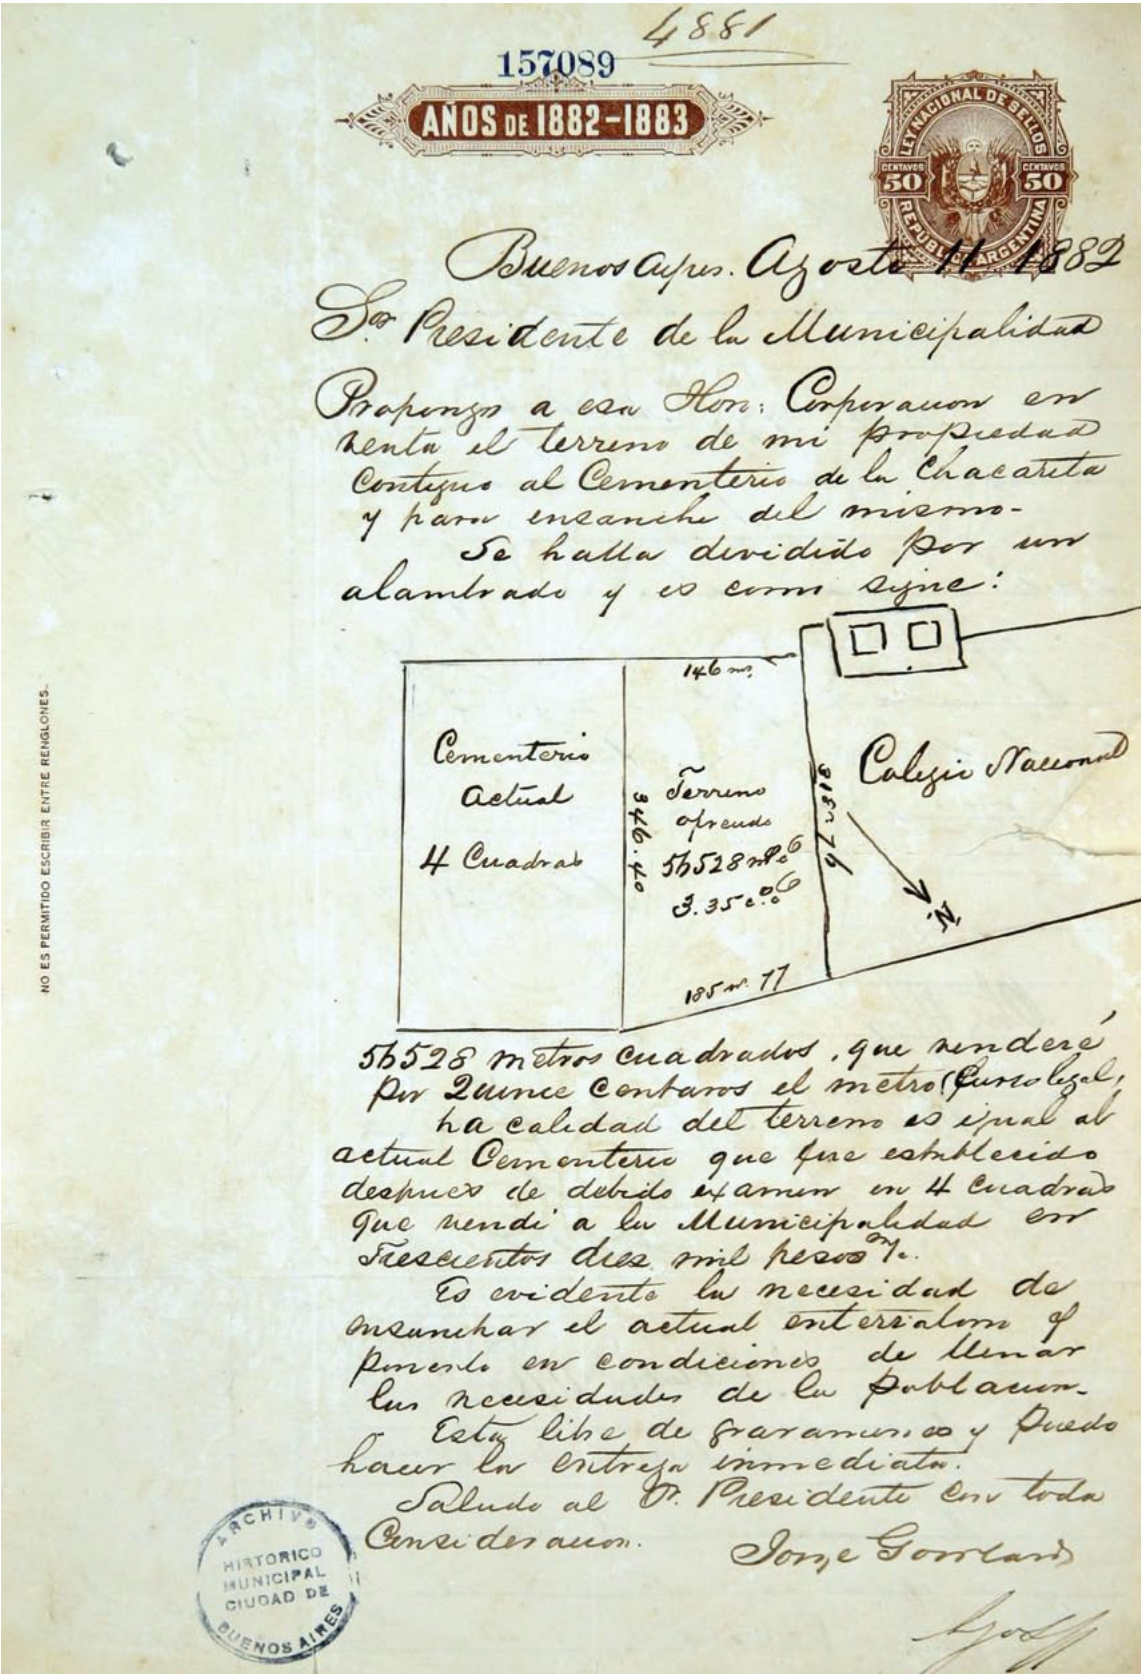 4881
157089
AÑOS DE 1882-1883
LEY NACIONAL DE SELLOS
CENTAVOS 50
CENTAVOS 50
REPUBLICA ARGENTINA
Buenos Ayres. Agosto 11 1882
Sor Presidente de la Municipalidad
Propongo a esa Hon: Corporacion en
venta el terreno de mi propiedad
contiguo al Cementerio de la Chacarita
y para ensanche del mismo-
Se halla dividido por un
alambrado y es como sigue:
146 m.
Cementerio
Actual
4 Cuadras
346.40
Terreno
ofrecido
56528 m
3.35 c
318m76
Colegio Nacional
N.
185 m. 77
NO ES PERMITIDO ESCRIBIR ENTRE RENGLONES.
56528 metros cuadrados, que venderé
por Quince Centavos el metro (Curso legal,
La calidad del terreno es igual al
actual Cementerio que fue establecido
despues de debido examen en 4 cuadras
que vendi a la Municipalidad en
Trescientos diez mil pesos m/c.
Es evidente la necesidad de
ensanchar el actual enterratorio y
ponerlo en condiciones de llenar
las necesidades de la poblacion.
Esta libre de gravamenes y puedo
hacer la entrega inmediata.
Saludo al Sr. Presidente con toda
Consideracion.
Jorge Gowland
ARCHIVO
HISTORICO
MUNICIPAL
CIUDAD DE
BUENOS AIRES